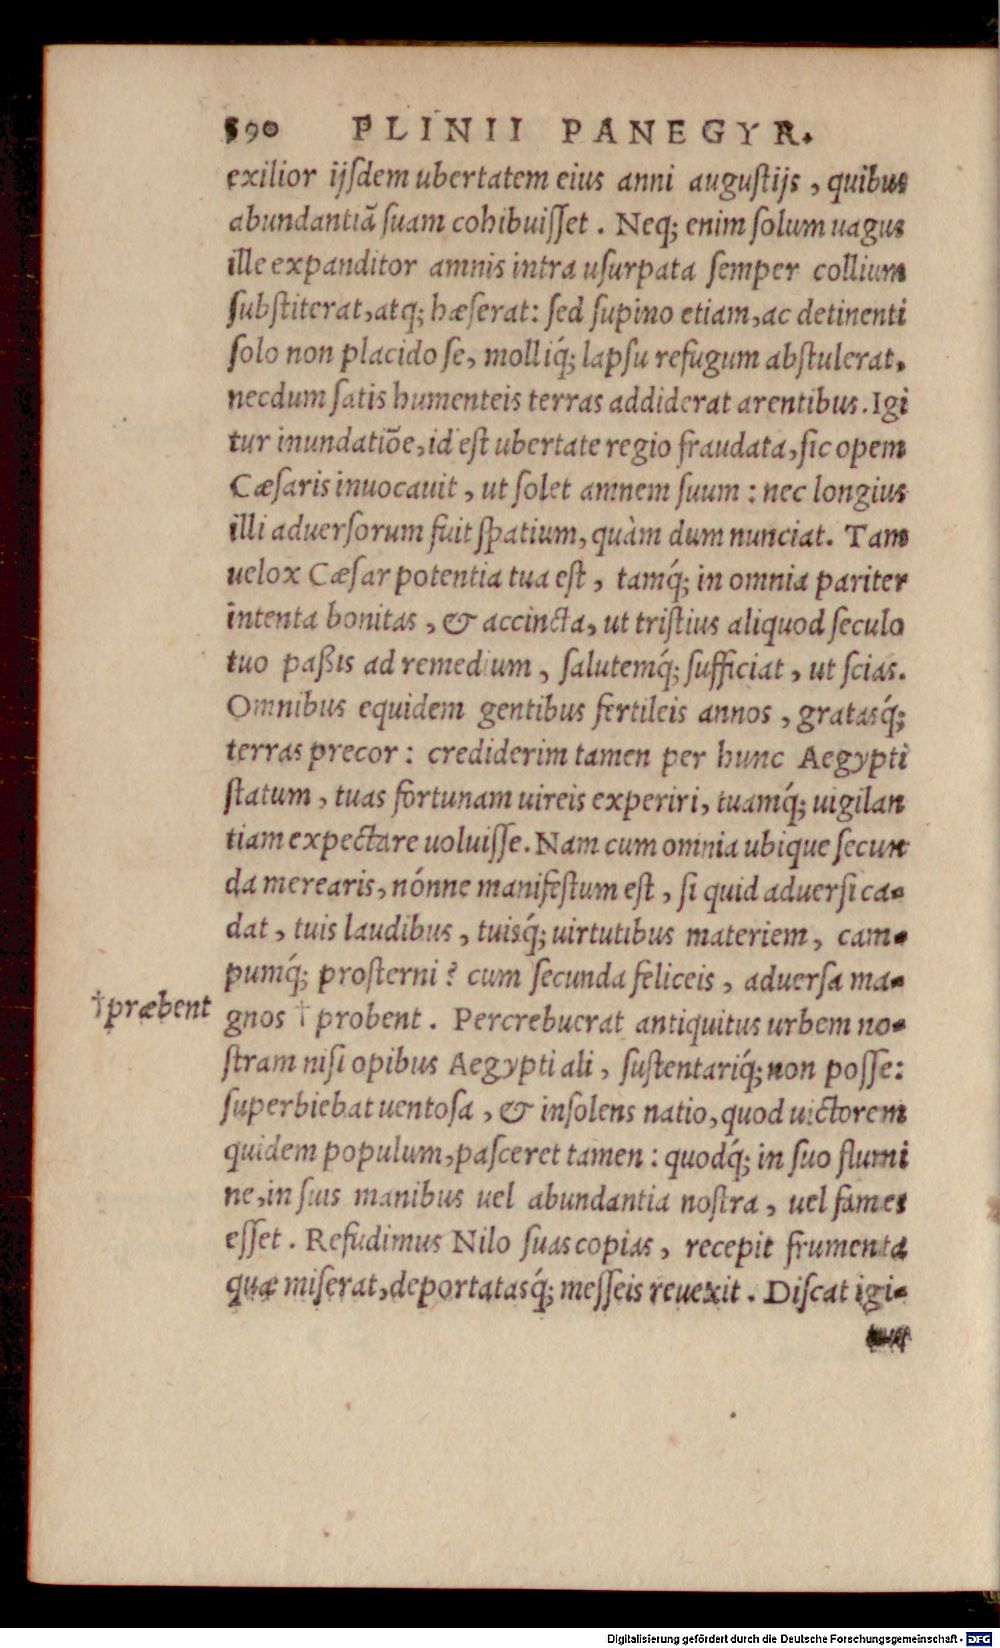 590 PLINII PANEGYR.
exilior ijſdem ubertatem eius anni auguſtijs, quibus
abundantiā ſuam cohibuiſſet. Neq; enim ſolum uagus
ille expanditor amnis intra uſurpata ſemper collium
ſubſtiterat, atq; hæſerat: ſed ſupino etiam, ac detinenti
ſolo non placido ſe, molliq́; lapſu refugum abſtulerat,
necdum ſatis humenteis terras addiderat arentibus. Igi
tur inundatiōe, id eſt ubertate regio fraudata, ſic opem
Cæſaris inuocauit, ut ſolet amnem ſuum: nec longius
illi aduerſorum fuit ſpatium, quàm dum nunciat. Tam
uelox Cæſar potentia tua eſt, tamq́; in omnia pariter
intenta bonitas, & accincta, ut triſtius aliquod ſeculo
tuo paßis ad remedium, ſalutemq́; ſufficiat, ut ſcias.
Omnibus equidem gentibus fertileis annos, gratasq́;
terras precor: crediderim tamen per hunc Aegypti
ſtatum, tuas fortunam uireis experiri, tuamq́; uigilan
tiam expectare uoluiſſe. Nam cum omnia ubique ſecun
da merearis, nónne manifeſtum eſt, ſi quid aduerſi ca-
dat, tuis laudibus, tuisq́; uirtutibus materiem, cam-
pumq́; proſterni? cum ſecunda feliceis, aduerſa ma-
†præbent
gnos † probent. Percrebuerat antiquitus urbem no-
ſtram niſi opibus Aegypti ali, ſuſtentariq́; non poſſe:
ſuperbiebat uentoſa, & inſolens natio, quod uictorem
quidem populum, paſceret tamen: quodq́; in ſuo flumi
ne, in ſuis manibus uel abundantia noſtra, uel fames
eſſet. Refudimus Nilo ſuas copias, recepit frumenta
quæ miſerat, deportatasq́; meſſeis reuexit. Diſcat igi-
Digitalisierung gefördert durch die Deutsche Forschungsgemeinschaft - DFG